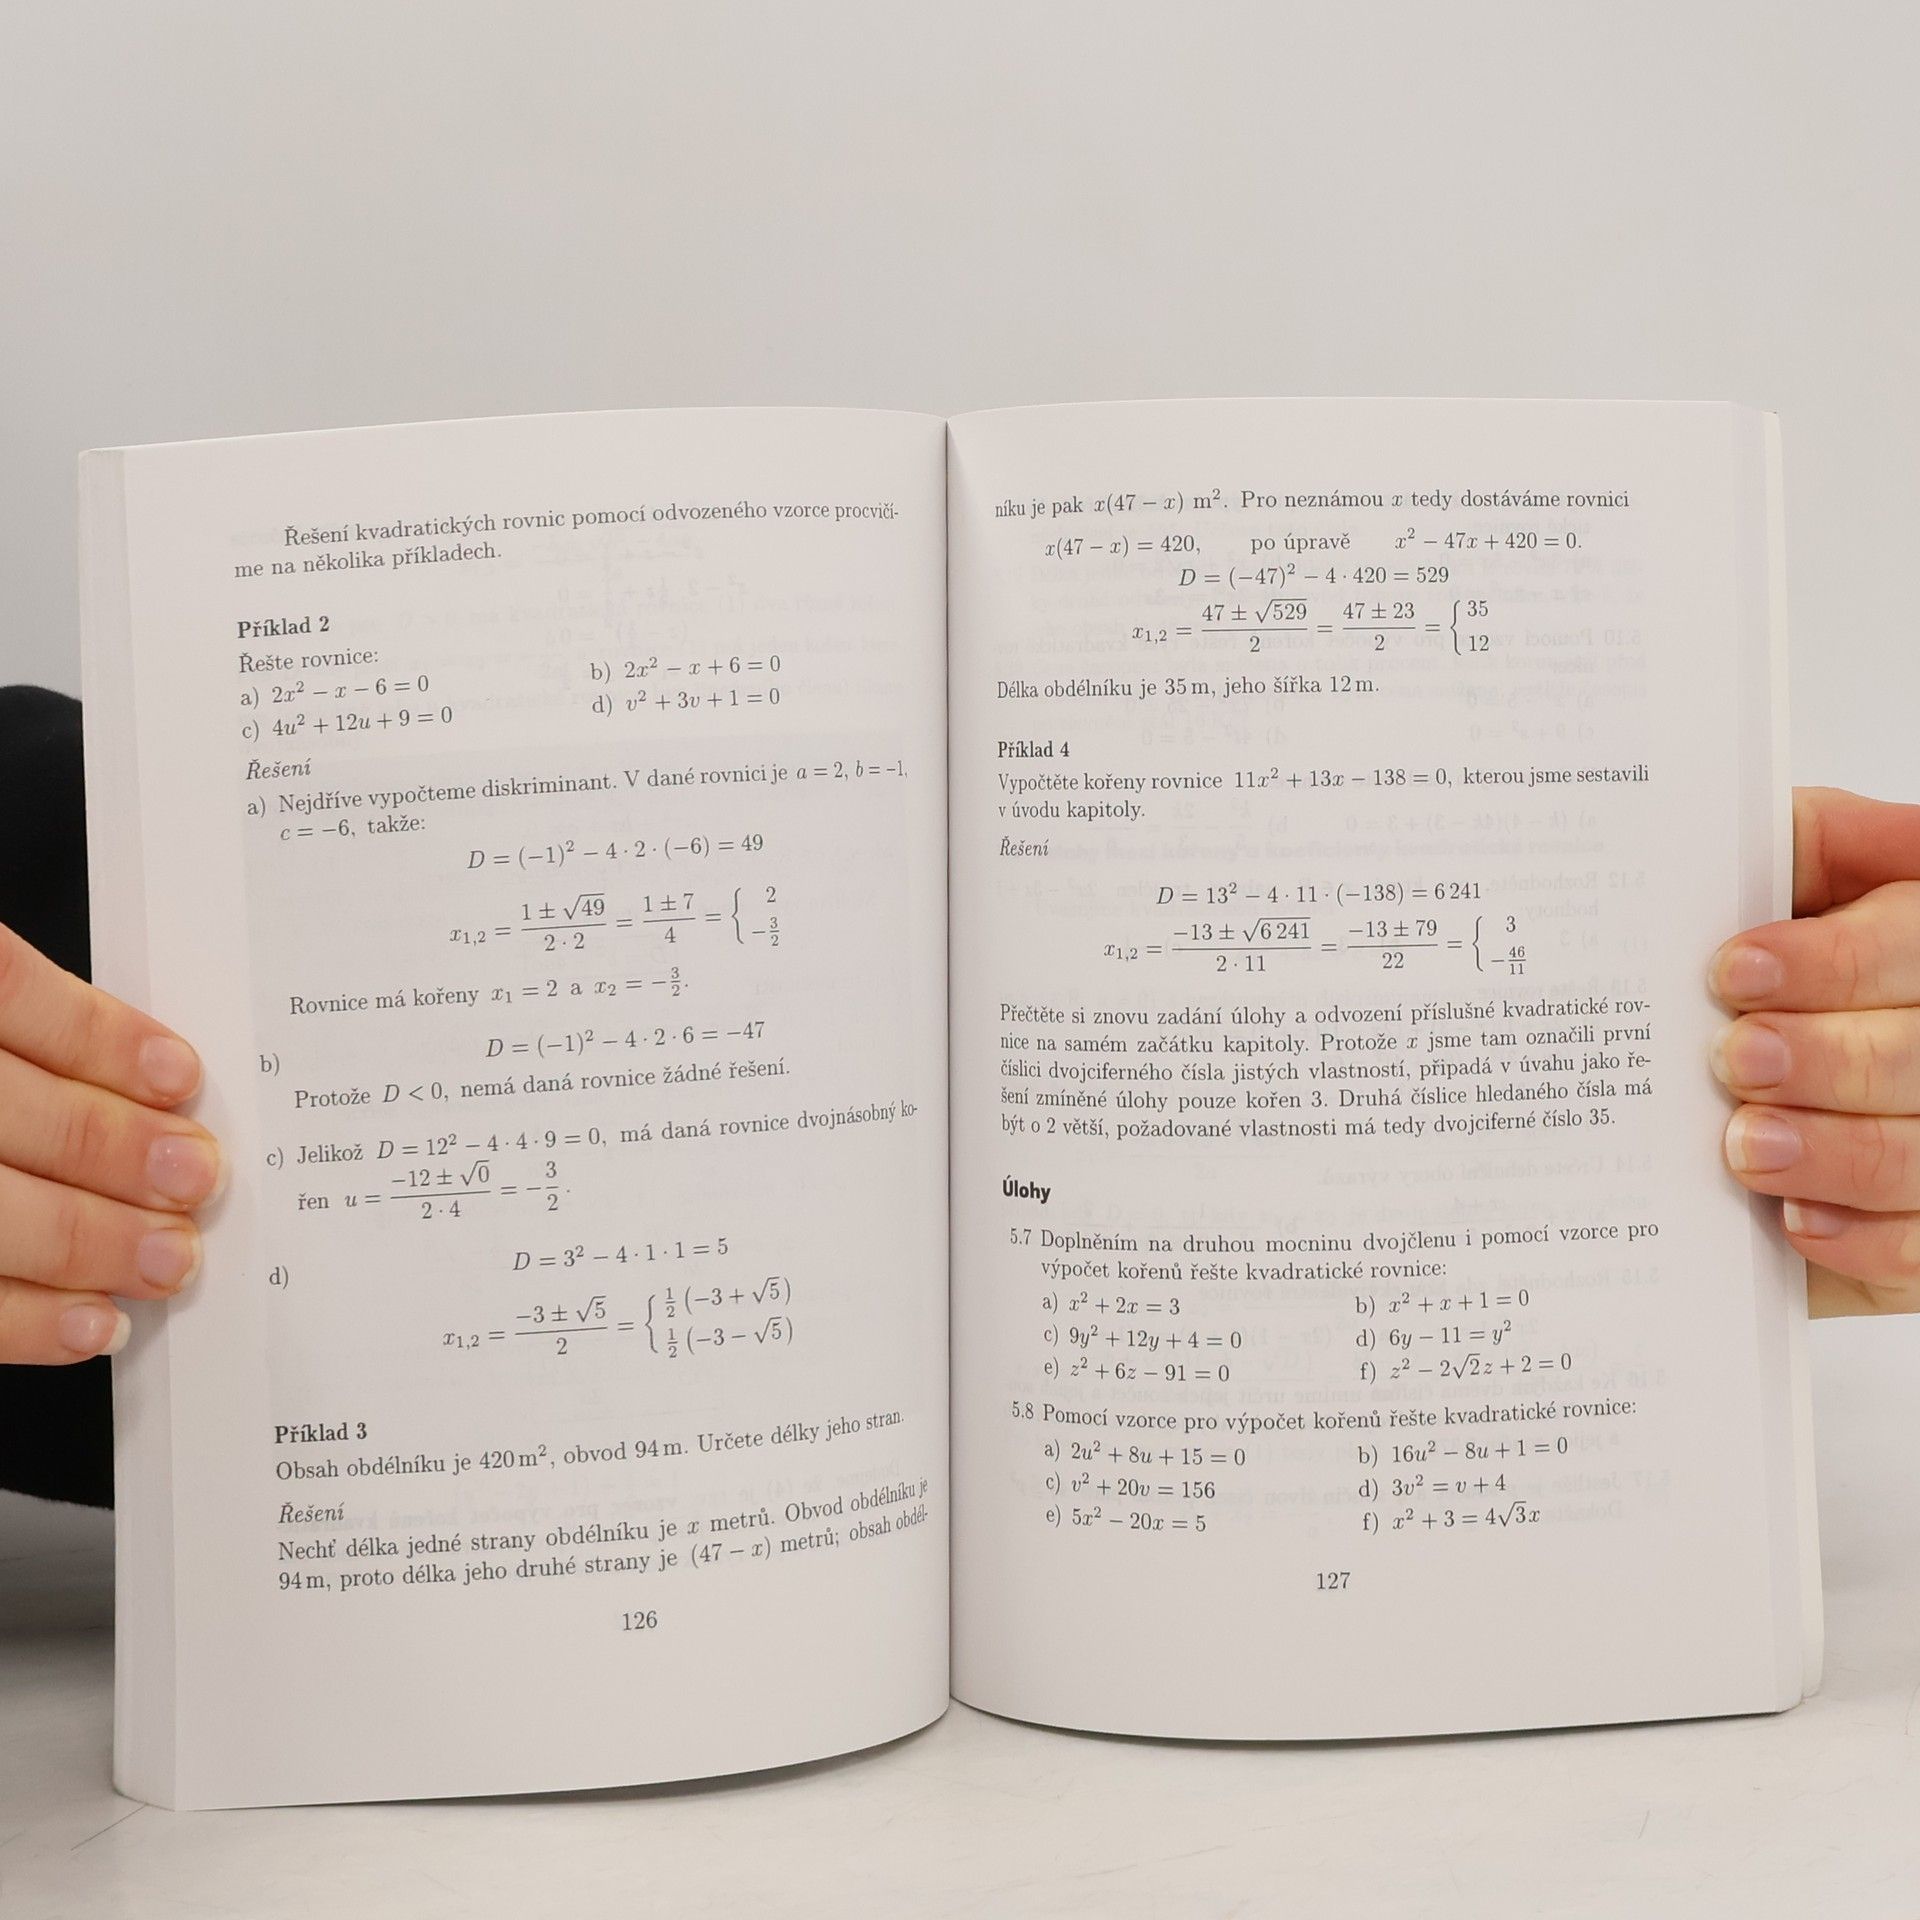 Řešení kvadratických rovnic pomocí odvozeného vzorce procvičí-
me na několika příkladech.
Příklad 2
Řešte rovnice:
a) 2x² − x − 6 = 0 b) 2x² − x + 6 = 0
c) 4u² + 12u + 9 = 0 d) v² + 3v + 1 = 0
Řešení
a) Nejdříve vypočteme diskriminant. V dané rovnici je a = 2, b = −1,
c = −6, takže:
D = (−1)² − 4 · 2 · (−6) = 49
x₁,₂ = (1 ± √49)/(2 · 2) = (1 ± 7)/4 = { 2 −3/2
Rovnice má kořeny x₁ = 2 a x₂ = −3/2.
b) D = (−1)² − 4 · 2 · 6 = −47
Protože D < 0, nemá daná rovnice žádné řešení.
c) Jelikož D = 12² − 4 · 4 · 9 = 0, má daná rovnice dvojnásobný ko-
řen u = (−12 ± √0)/(2 · 4) = −3/2.
d) D = 3² − 4 · 1 · 1 = 5
x₁,₂ = (−3 ± √5)/2 = { 1/2 (−3 + √5) 1/2 (−3 − √5)
Příklad 3
Obsah obdélníku je 420 m², obvod 94 m. Určete délky jeho stran.
Řešení
Nechť délka jedné strany obdélníku je x metrů. Obvod obdélníku je
94 m, proto délka jeho druhé strany je (47 − x) metrů; obsah obdél-
126
níku je pak x(47 − x) m². Pro neznámou x tedy dostáváme rovnici
x(47 − x) = 420, po úpravě x² − 47x + 420 = 0.
D = (−47)² − 4 · 420 = 529
x₁,₂ = (47 ± √529)/2 = (47 ± 23)/2 = { 35 12
Délka obdélníku je 35 m, jeho šířka 12 m.
Příklad 4
Vypočtěte kořeny rovnice 11x² + 13x − 138 = 0, kterou jsme sestavili
v úvodu kapitoly.
Řešení
D = 13² − 4 · 11 · (−138) = 6 241
x₁,₂ = (−13 ± √6 241)/(2 · 11) = (−13 ± 79)/22 = { 3 −46/11
Přečtěte si znovu zadání úlohy a odvození příslušné kvadratické rov-
nice na samém začátku kapitoly. Protože x jsme tam označili první
číslici dvojciferného čísla jistých vlastností, připadá v úvahu jako ře-
šení zmíněné úlohy pouze kořen 3. Druhá číslice hledaného čísla má
být o 2 větší, požadované vlastnosti má tedy dvojciferné číslo 35.
Úlohy
5.7 Doplněním na druhou mocninu dvojčlenu i pomocí vzorce pro
výpočet kořenů řešte kvadratické rovnice:
a) x² + 2x = 3 b) x² + x + 1 = 0
c) 9y² + 12y + 4 = 0 d) 6y − 11 = y²
e) z² + 6z − 91 = 0 f) z² − 2√2 z + 2 = 0
5.8 Pomocí vzorce pro výpočet kořenů řešte kvadratické rovnice:
a) 2u² + 8u + 15 = 0 b) 16u² − 8u + 1 = 0
c) v² + 20v = 156 d) 3v² = v + 4
e) 5x² − 20x = 5 f) x² + 3 = 4√3x
127